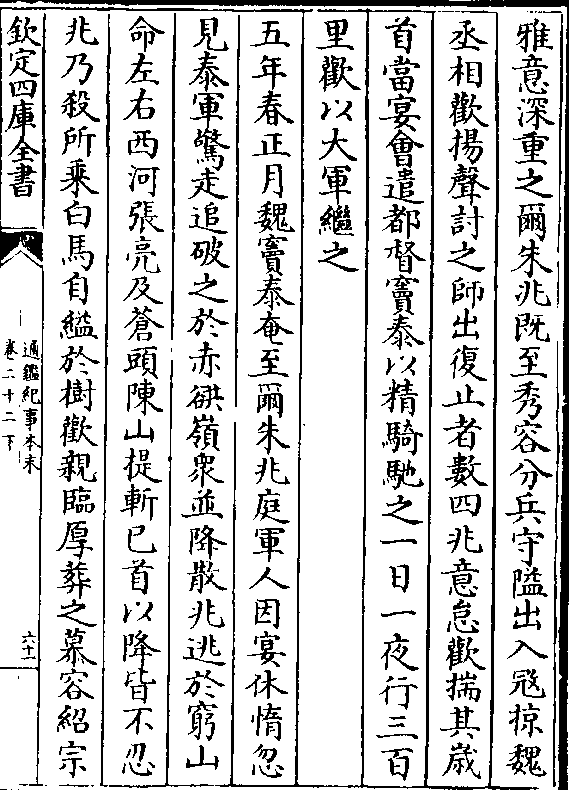 雅意深重之爾朱兆既至秀容分兵守隘出入冦掠魏
丞相歡揚聲討之師出復止者數四兆意怠歡揣其歳
首當宴會遣都督竇泰以精騎馳之一日一夜行三百
里歡以大軍繼之
五年春正月魏竇泰奄至爾朱兆庭軍人因宴休惰忽
見泰軍驚走追破之於赤𧻓嶺衆並降散兆逃於窮山
命左右西河張亮及蒼頭陳山提斬已首以降皆不忍
兆乃殺所乗白馬自縊於樹歡親臨厚葬之慕容紹宗
欽定四庫全書
通鑑紀事本末
卷二十二下
六十一